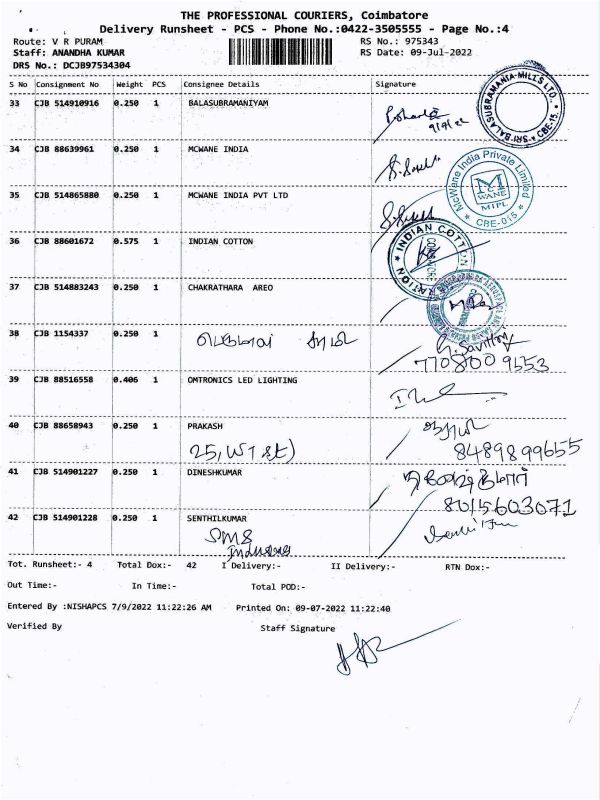 THE PROFESSIONAL COURIERS, Coimbatore
Delivery Runsheet - PCS - Phone No.:0422-3505555 - Page No.:4
Route: V R PURAM RS No.: 975343
Staff: ANANDHA KUMAR RS Date: 09-Jul-2022
DRS No.: DCJB97534304
S No Consignment No Weight PCS Consignee Details Signature
33 CJB 514910916 0.250 1 BALASUBRAMANIYAM
9/7/22
SRI BALASUBRAMANIA MILLS LTD. CBE-15.
34 CJB 88639961 0.250 1 MCWANE INDIA
McWane India Private Limited
MCWANE
MIPL
CBE-015
35 CJB 514865880 0.250 1 MCWANE INDIA PVT LTD
36 CJB 88601672 0.575 1 INDIAN COTTON
INDIAN COTTON
37 CJB 514883243 0.250 1 CHAKRATHARA AREO
38 CJB 1154337 0.250 1
G. Savithri
7708009553
39 CJB 88516558 0.406 1 OMTRONICS LED LIGHTING
40 CJB 88658943 0.250 1 PRAKASH
25,
8489899655
41 CJB 514901227 0.250 1 DINESHKUMAR
8015603071
42 CJB 514901228 0.250 1 SENTHILKUMAR
SMS
Tot. Runsheet:- 4 Total Dox:- 42 I Delivery:- II Delivery:- RTN Dox:-
Out Time:- In Time:- Total POD:-
Entered By :NISHAPCS 7/9/2022 11:22:26 AM Printed On: 09-07-2022 11:22:40
Verified By Staff Signature